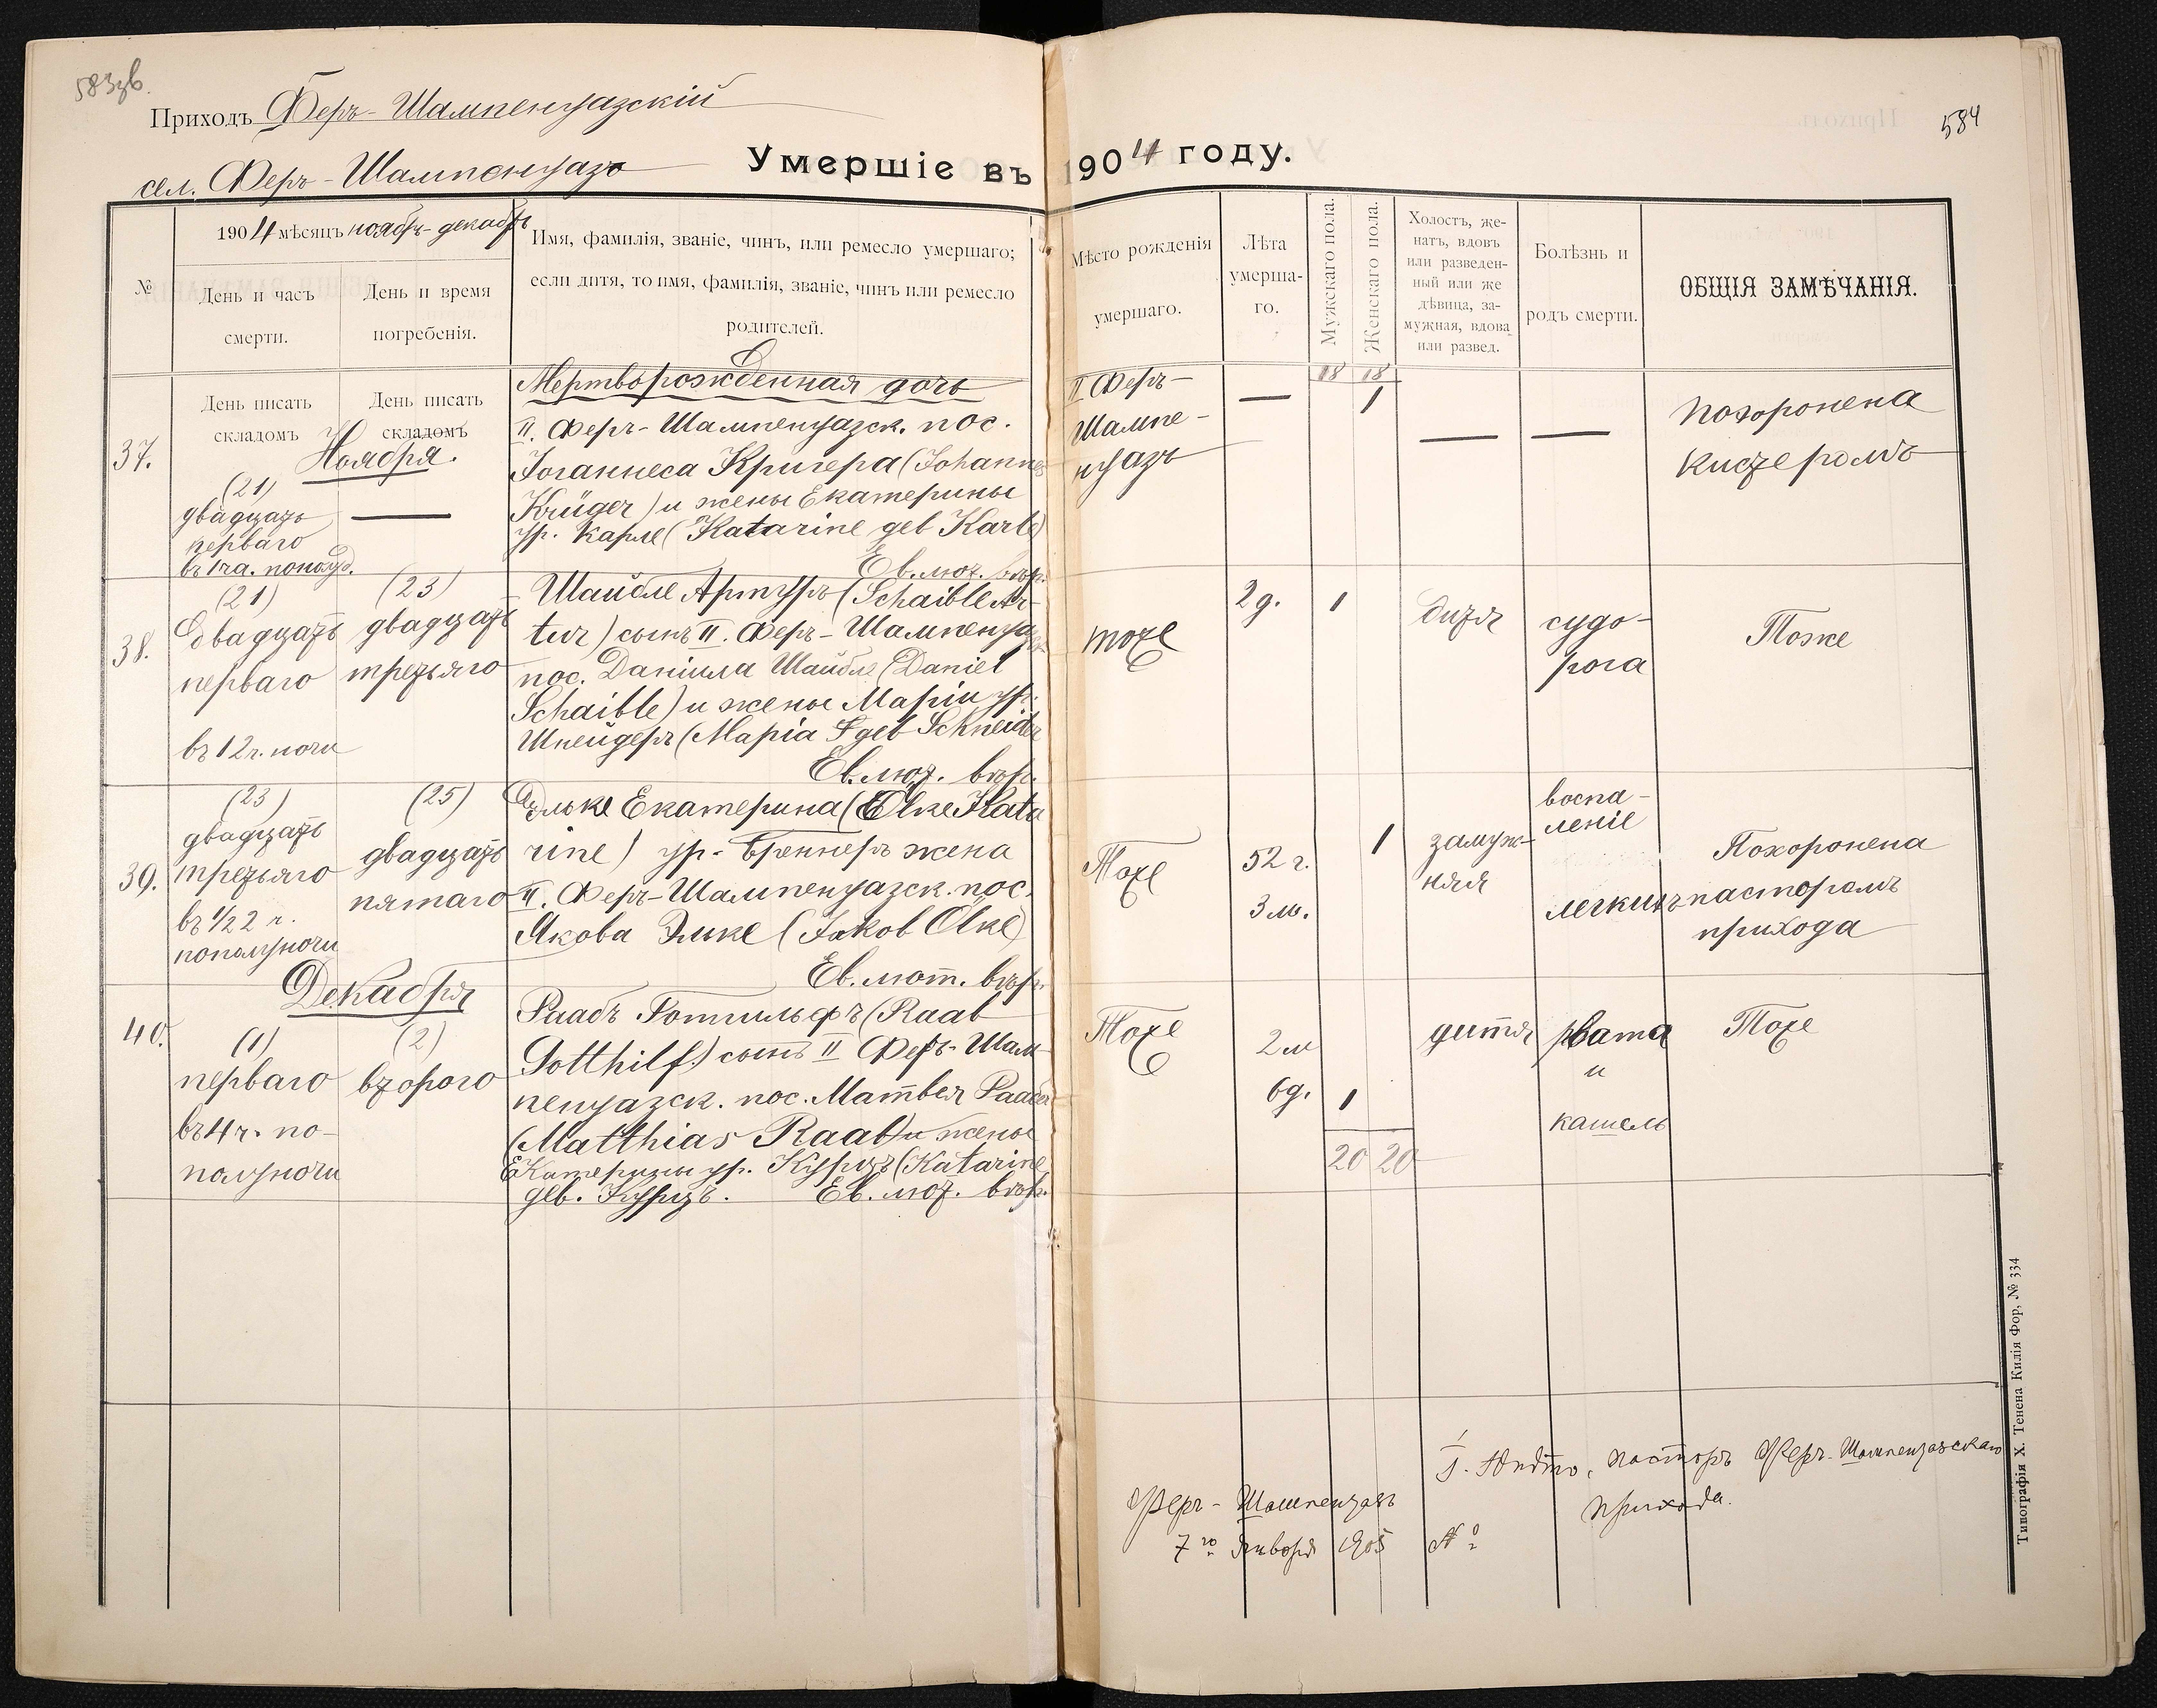 583об.
584
Приходъ Феръ-Шампенуазскій
сел. Феръ-Шампенуазъ
Умершіе въ 1904 году.
№
1904 мѣсяцъ ноябрь-декабрь
День и часъ
смерти.
День и время
погребенія.
Имя, фамилія, званіе, чинъ, или ремесло умершаго;
если дитя, то имя, фамилія, званіе, чинъ или ремесло
родителей.
Мѣсто рожденія
умершаго.
Лѣта
умерша-
го.
Мужскаго пола.
Женскаго пола.
Холостъ, же-
натъ, вдовъ
или разведен-
ный или же
дѣвица, за-
мужная, вдова
или развед.
Болѣзнь и
родъ смерти.
ОБЩІЯ ЗАМѢЧАНІЯ.
18 18
День писать
складомъ
День писать
складомъ
Ноября.
37.
(21)
двадцать
перваго
въ 1 ча. пополуд.
—
Мертворожденная дочь
II. Феръ-Шампенуазск. пос.
Іоганнеса Кригера (Johannes
Krüger) и жены Екатерины
ур. Карле (Katarine geb Karle)
Ев. лют. вѣр.
II Феръ-
Шампе-
нуазъ
—
1
—
—
похоронена
кистеромъ
38.
(21)
двадцать
перваго
въ 12 ч. ночи
(23)
двадцать
третьяго
Шайбле Артуръ (Schaible Ar-
tur) сынъ II. Феръ-Шампенуазск
пос. Даніила Шайбле (Daniel
Schaible) и жены Маріи ур.
Шнейдеръ (Марiа geb Schneider
Ев. лют. вѣр.
тоже
2 д.
1
дитя
судо-
рога
Тоже
39.
(23)
двадцать
третьяго
въ 1/2 2 ч.
пополуночи
(25)
двадцать
пятаго
Эльке Екатерина (Ölke Kata
rine) ур. Бреннеръ жена
II. Феръ-Шампенуазск. пос.
Якова Эльке (Jakob Ölke)
Ев. лют. вѣр.
Тоже
52 г.
3 м.
1
замуж-
няя
воспа-
леніе
легкихъ
Похоронена
пасторомъ
прихода
Декабря
40.
(1)
перваго
въ 4 ч. по-
полуночи
(2)
второго
Раабъ Готтильфъ (Raab
Gotthilf) сынъ II Феръ-Шам-
пенуазск. пос. Матвея Рааба
(Matthias Raab) и жены
Екатерины ур. Курцъ (Katarine
geb. Курцъ. Ев. лют. вѣр.
Тоже
2 м
6 д.
1
дитя
рвота
и
кашель
Тоже
20 20
пасторъ Феръ-Шампенуазскаго
прихода.
Феръ-Шампенуазъ
7го Января 1905 №
Типографія Х. Тенена Килія Фор, № 334